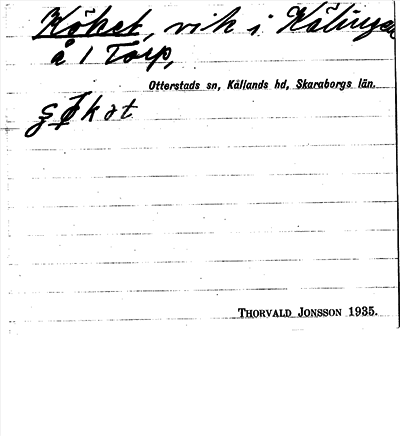 Köket, vik i Kålingen
å 1 Torp,
Otterstads sn, Kållands hd, Skaraborgs län.
THORVALD JONSSON 1935.